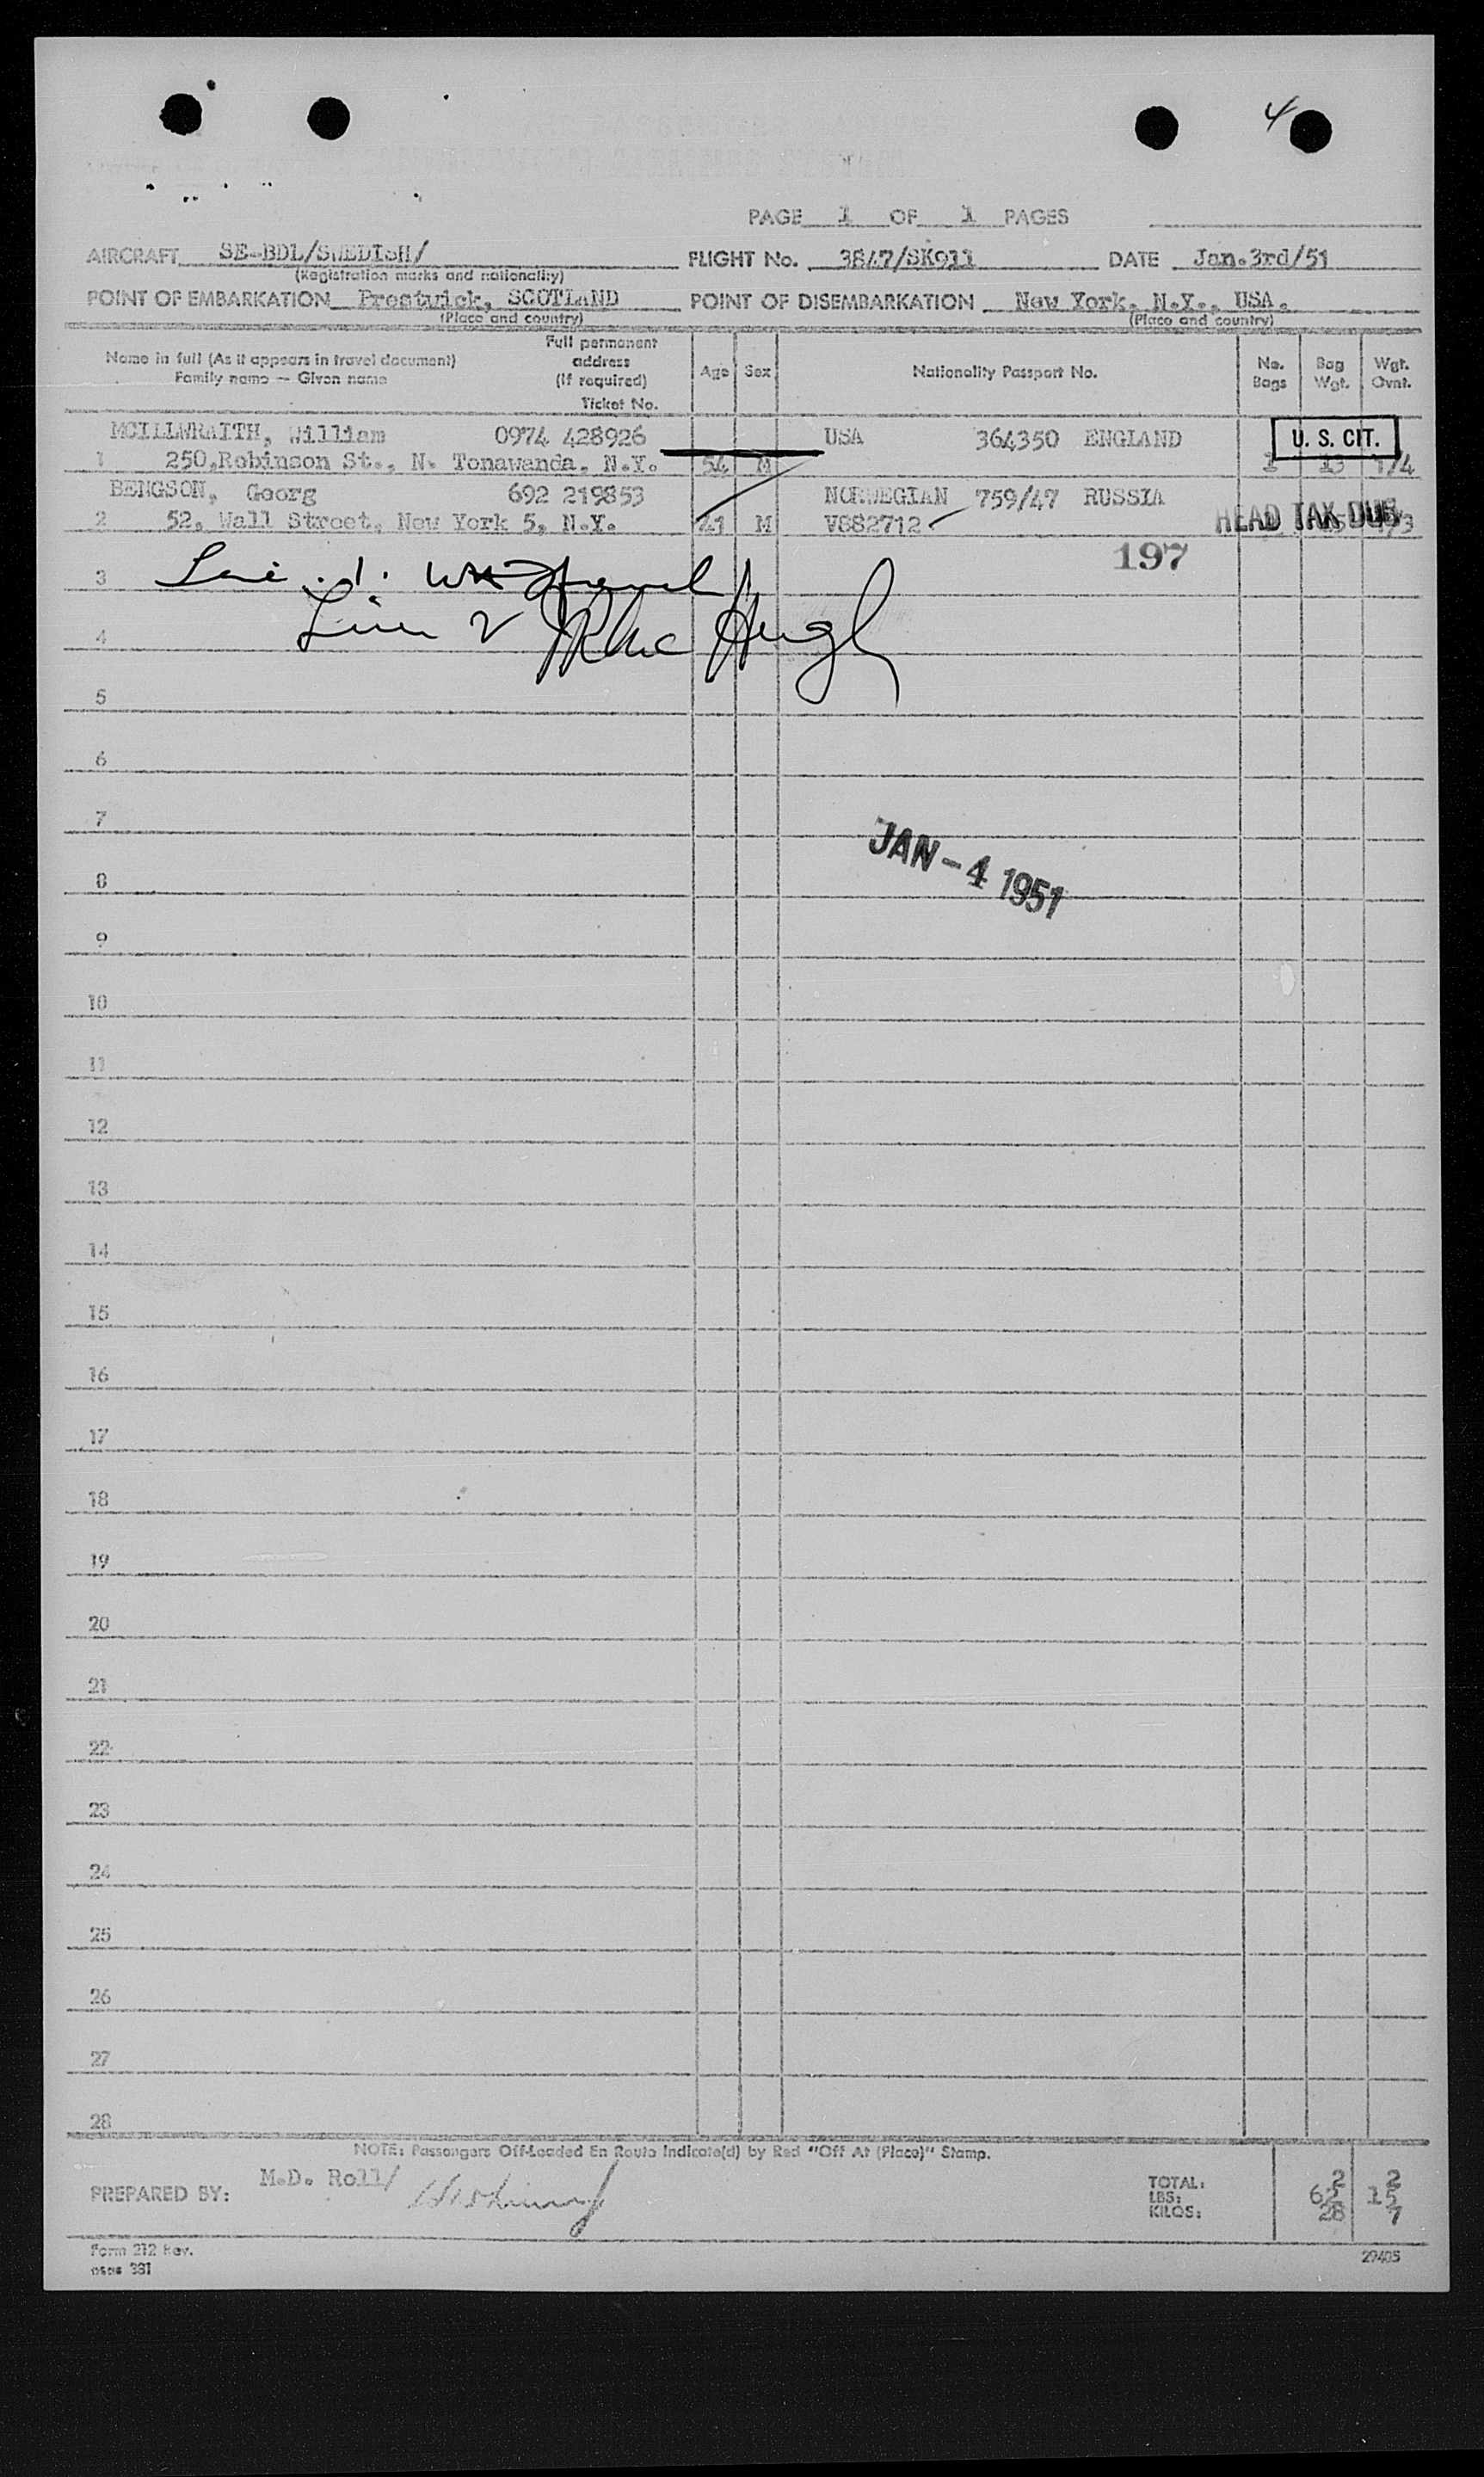 4
PAGE 1 OF 1 PAGES
AIRCRAFT SE-BDL/SWEDISH/ FLIGHT No. 3847/SK911 DATE Jan.3rd/51
(Registration marks and nationality)
POINT OF EMBARKATION Prestwick, SCOTLAND POINT OF DISEMBARKATION New York, N.Y., USA.
(Place and country) (Place and country)
Name in full (As it appears in travel document)
Family name — Given name
Full permanent
address
(If required)
Ticket No.
Age Sex Nationality Passport No. No. Bags Bag Wgt. Wgt. Ovnt.
MCILLWRAITH, William 0974 428926 USA 364350 ENGLAND U. S. CIT.
1 250,Robinson St., N. Tonawanda, N.Y. 54 M 1 13 7/4
BENGSON, Georg 692 219853 NORWEGIAN 759/47 RUSSIA
2 52, Wall Street, New York 5, N.Y. 41 M V882712 HEAD TAX DUE
197
3
4 Line 2
5
6
7
JAN-4 1951
8
9
10
11
12
13
14
15
16
17
18
19
20
21
22
23
24
25
26
27
28
NOTE: Passengers Off-Loaded En Route Indicate(d) by Red "Off At (Place)" Stamp.
PREPARED BY: M.D. Roll/
TOTAL: 2 2
LBS: 62 15
KILOS: 28 7
Form 212 Rev.
29405